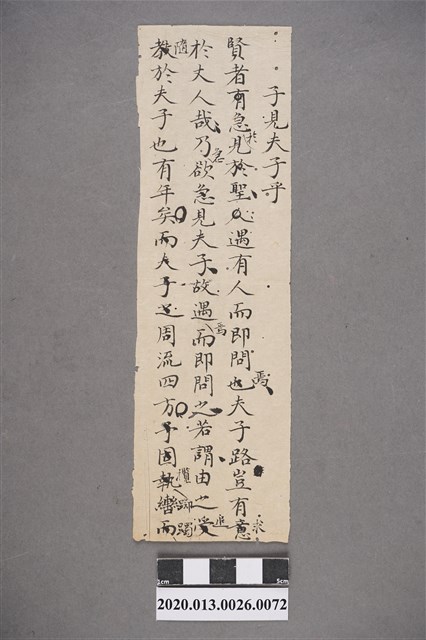 子見夫子乎
賢者有急見於聖人遇有人而即問也焉夫子路豈有意求
於丈人哉乃欲急見夫子故遇焉而即問之若謂由之受
教於夫子也有年矣而夫子之周流四方予固執轡而
隨
急
於
追
躅
5cm
2020.013.0026.0072